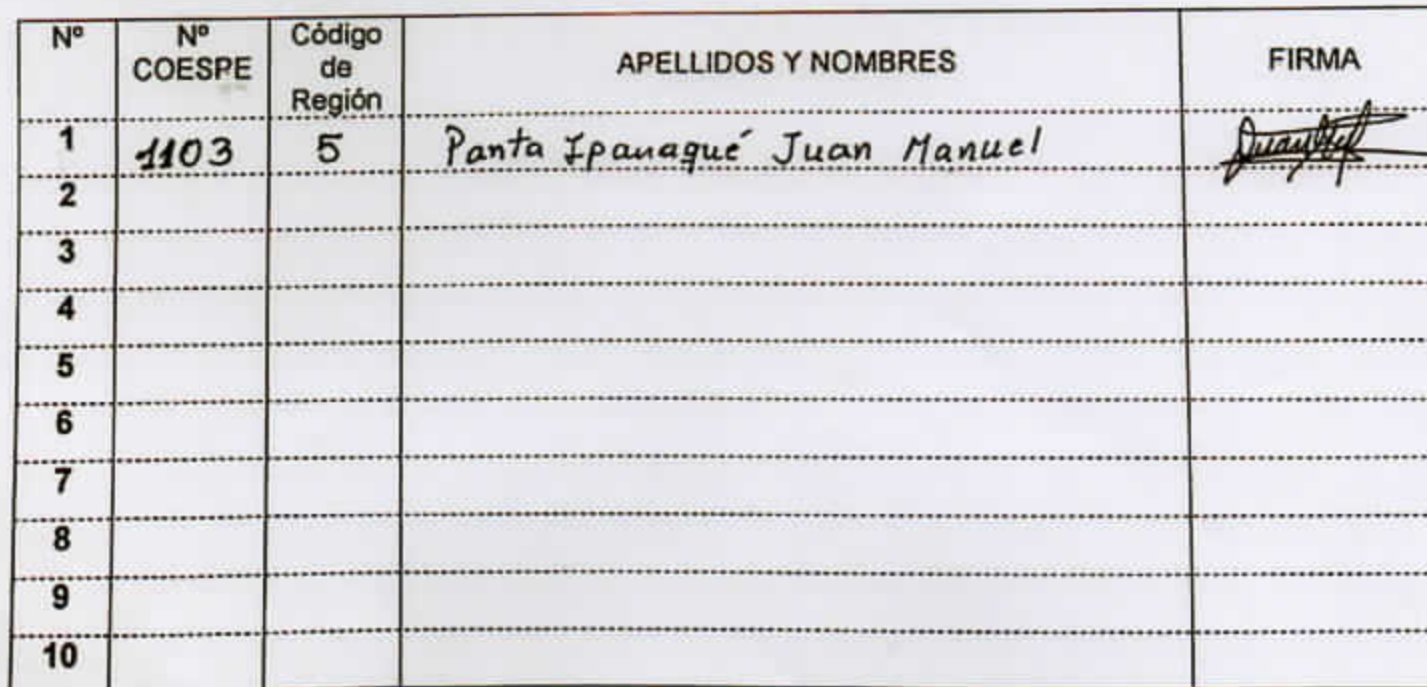 Nº Nº COESPE Código de Región APELLIDOS Y NOMBRES FIRMA
1 1103 5 Panta Ipanaqué Juan Manuel
2
3
4
5
6
7
8
9
10